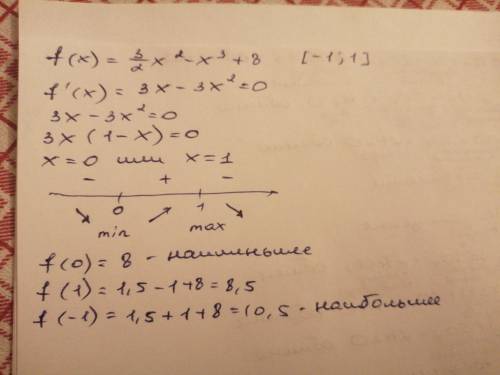 f(x) = 3/2 x² - x³ + 8 [-1; 1]
f'(x) = 3x - 3x² = 0
3x - 3x² = 0
3x (1 - x) = 0
x = 0 или x = 1
- + -
0 1
min max
f(0) = 8 - наименьшее
f(1) = 1,5 - 1 + 8 = 8,5
f(-1) = 1,5 + 1 + 8 = 10,5 - наибольшее